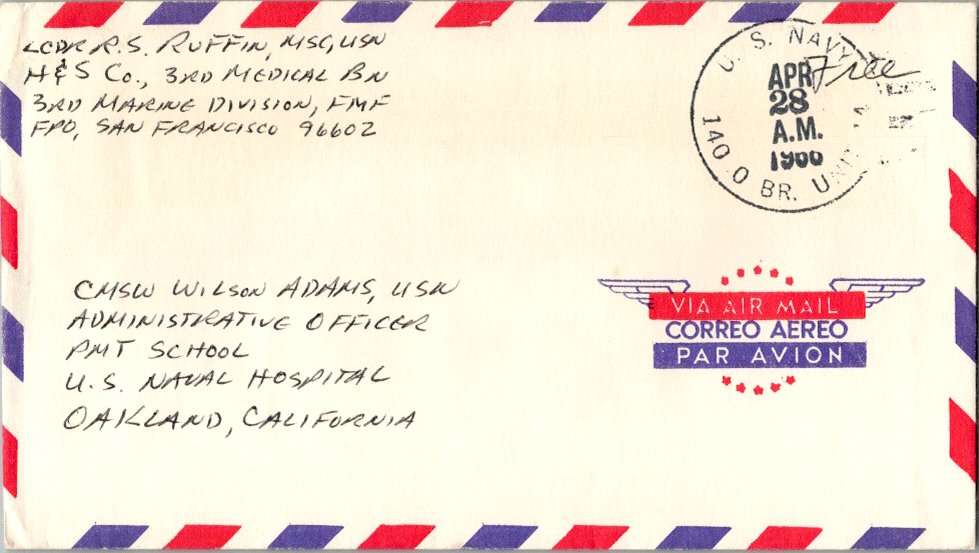 LCDR R.S. RUFFIN, MSC, USN
H & S Co., 3RD MEDICAL BN
3RD MARINE DIVISION, FMF
FPO, SAN FRANCISCO 96602
U. S. NAVY
Free
APR
28
A.M.
1966
14010 BR. UNIT
CMSW WILSON ADAMS, USN
ADMINISTRATIVE OFFICER
PMT SCHOOL
U.S. NAVAL HOSPITAL
OAKLAND, CALIFORNIA
VIA AIR MAIL
CORREO AEREO
PAR AVION